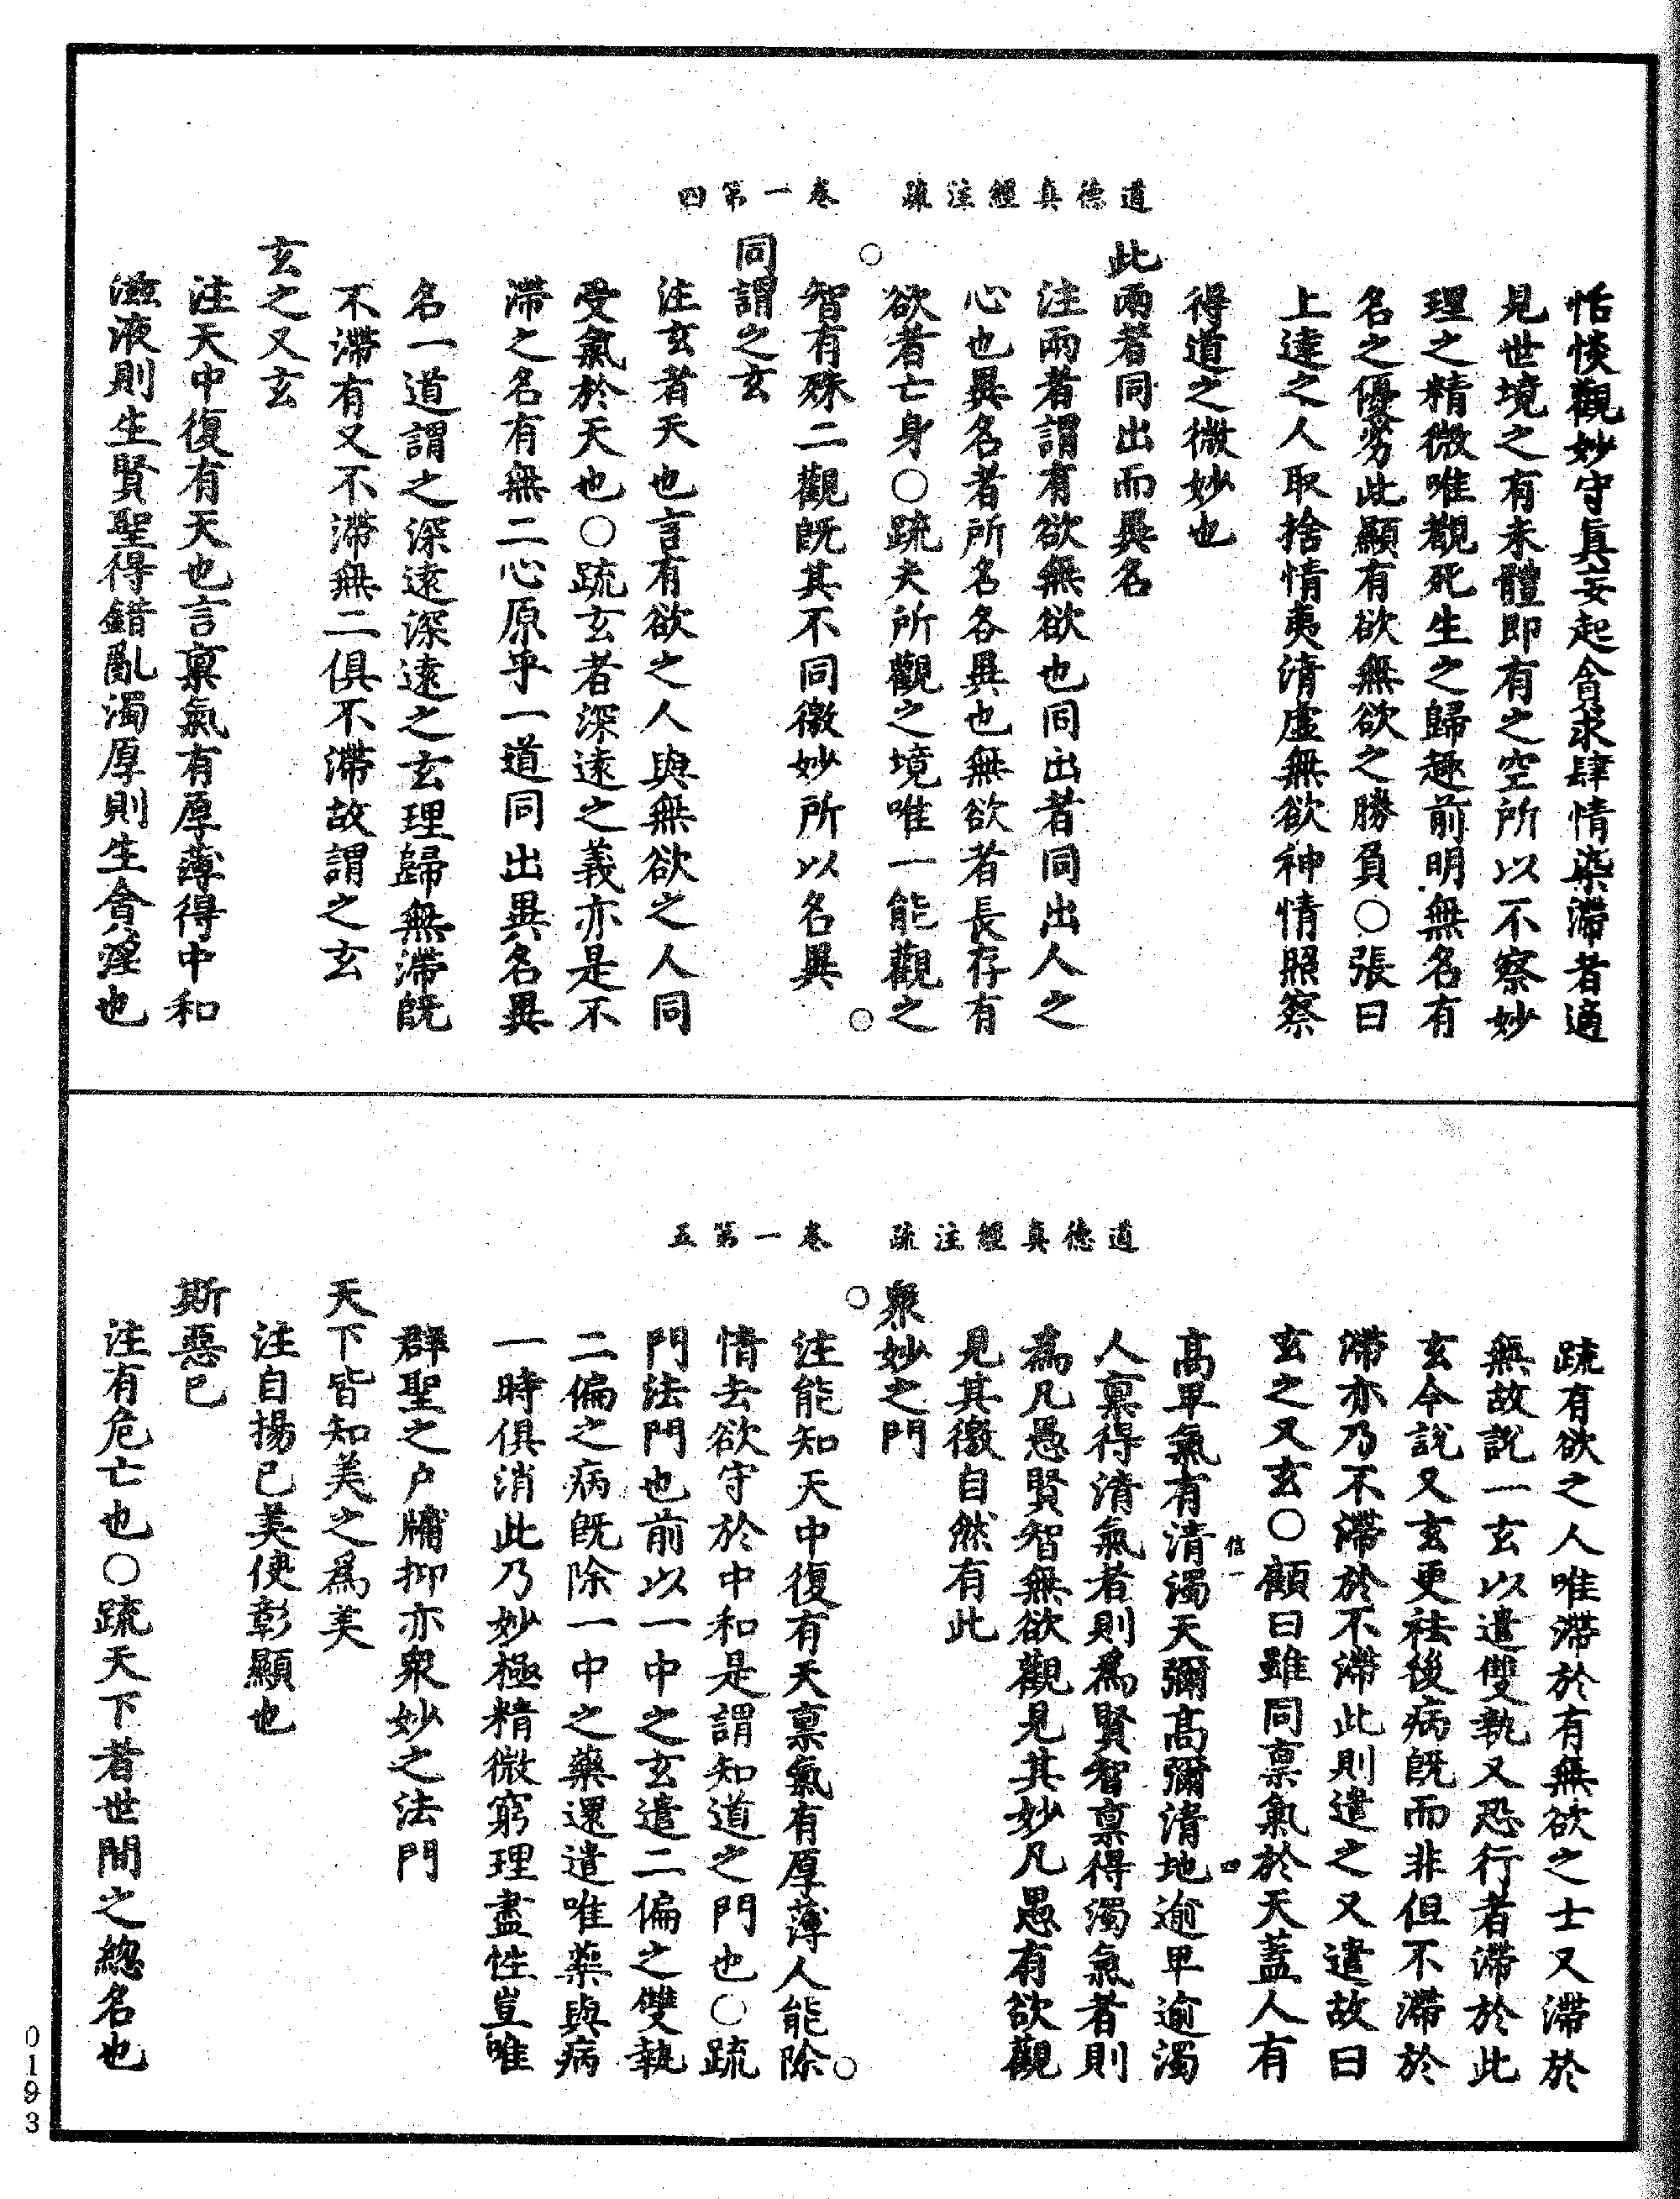 道德真經注疏　卷一第四
恬惔觀妙守真妄起貪求肆情染滯者適
見世境之有未體即有之空所以不察妙
理之精微唯覩死生之歸趣前明無名有
名之優劣此顯有欲無欲之勝負○張曰
上達之人取捨情夷清虛無欲神情照察
得道之微妙也
此兩者同出而異名
注兩者謂有欲無欲也同出者同出人之
心也異名者所名各異也無欲者長存有
欲者亡身○疏夫所觀之境唯一能觀之
智有殊二觀既其不同徼妙所以名異
同謂之玄
注玄者天也言有欲之人與無欲之人同
受氣於天也○疏玄者深遠之義亦是不
滯之名有無二心原乎一道同出異名異
名一道謂之深遠深遠之玄理歸無滯既
不滯有又不滯無二俱不滯故謂之玄
玄之又玄
注天中復有天也言稟氣有厚薄得中和
滋液則生賢聖得錯亂濁厚則生貪淫也
道德真經注疏　卷一第五
疏有欲之人唯滯於有無欲之士又滯於
無故說一玄以遣雙執又恐行者滯於此
玄今說又玄更祛後病既而非但不滯於
滯亦乃不滯於不滯此則遣之又遣故曰
玄之又玄○顧曰雖同稟氣於天蓋人有
信一　四
高卑氣有清濁天彌高彌清地逾卑逾濁
人稟得清氣者則為賢智稟得濁氣者則
為凡愚賢智無欲觀見其妙凡愚有欲觀
見其徼自然有此
眾妙之門
注能知天中復有天稟氣有厚薄人能除
情去欲守於中和是謂知道之門也○疏
門法門也前以一中之玄遣二偏之雙執
二偏之病既除一中之藥還遣唯藥與病
一時俱消此乃妙極精微窮理盡性豈唯
群聖之戶牖抑亦眾妙之法門
天下皆知美之為美
注自揚己美使彰顯也
斯惡已
注有危亡也○疏天下者世間之總名也
0193